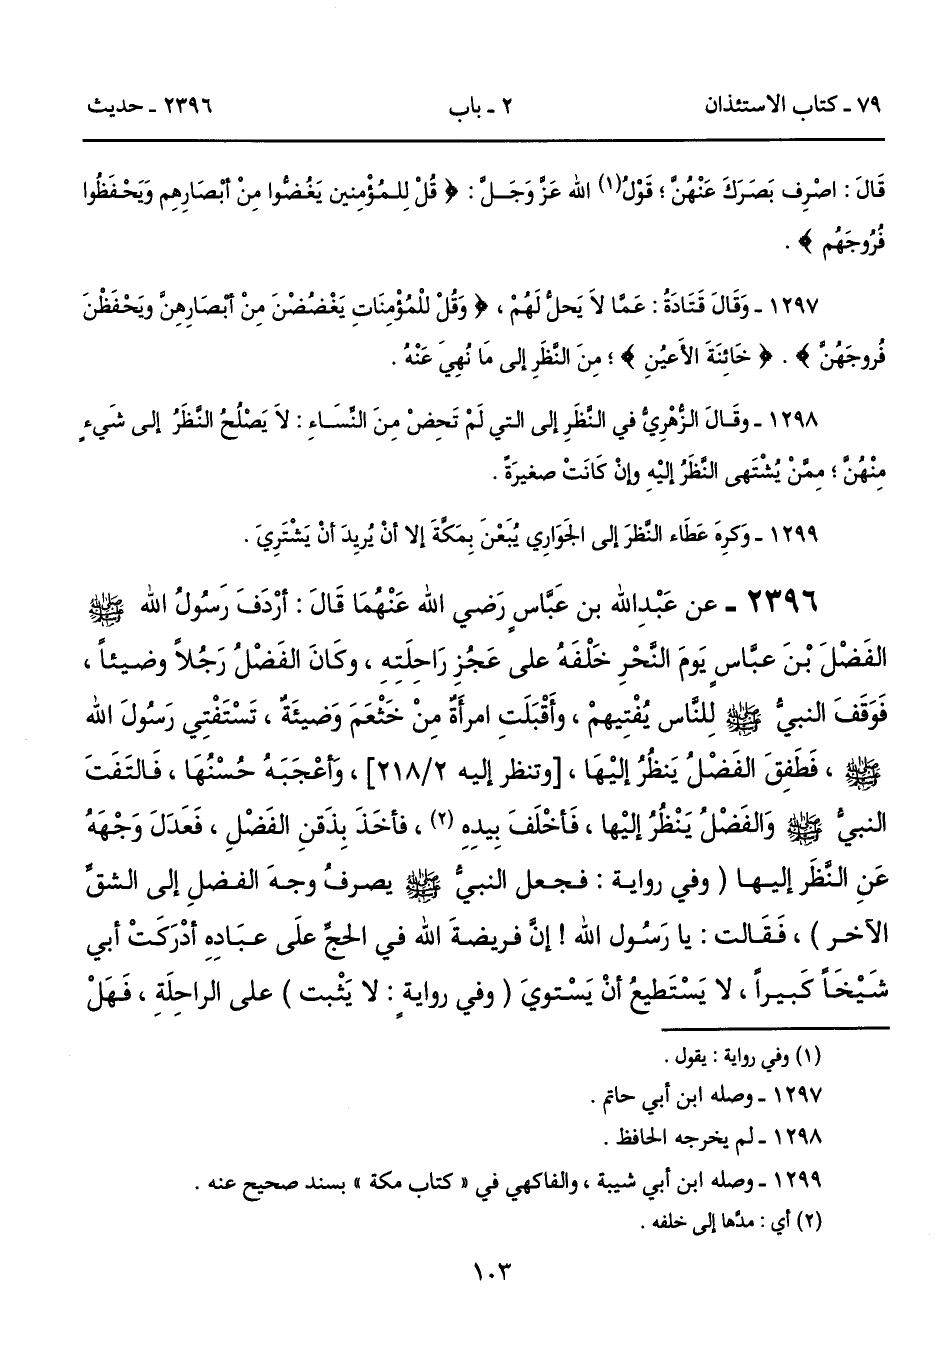 ٧٩ ـ كتاب الاستئذان ٢ ـ باب ٢٣٩٦ ـ حديث
قَالَ : اصْرِف بَصَرَكَ عَنْهُنَّ ؛ قَوْلُ(١) الله عَزَّ وَجَـلَّ : ﴿ قُلْ لِلـمُـؤْمِنين يَغُضُّوا مِنْ أبْصَارِهِم وَيَحْـفَظُوا
فُرُوجَهُم ﴾ .
١٢٩٧ ـ وَقَالَ قَتَادَةُ : عَمَّا لاَ يَحلُّ لَهُمْ ، ﴿ وَقُلْ لْلمُؤْمِنَاتِ يَغْضُضْنَ مِنْ أبْصَارِهِنَّ ويَحْفَظْنَ
فُروجَهُنَّ ﴾ . ﴿ خَائِنَةَ الأَعيُنِ ﴾ ؛ مِنَ النَّظَرِ إلى مَا نُهِيَ عَنْهُ .
١٢٩٨ ـ وقَـالَ الزُّهْرِيُّ في النَّظَرِ إلى التي لَمْ تَحِضْ مِنَ النِّسَـاءِ : لاَ يَصْلُحُ النَّظَرُ إلى شَيءٍ
مِنْهُنَّ ؛ مِمَّنْ يُشْتَهى النَّظَرُ إلَيْهِ وإنْ كَانَتْ صغيرَةً .
١٢٩٩ ـ وَكرِهَ عَطَاء النَّظرَ إلى الجَوَاري يُبَعْنَ بِمَكَّةَ إلا أنْ يُرِيدَ أنْ يَشْتَرِيَ .
٢٣٩٦ ـ عن عَبْدِالله بن عَبَّاسٍ رَضي الله عَنْهُمَا قَالَ : أرْدَفَ رَسُولُ الله ﷺ
الفَضْلَ بْنَ عبَّاسٍ يَومَ النَّحْرِ خَلْفَهُ على عَجُزِ رَاحِلَتِهِ ، وكَانَ الفَضْلُ رَجُلاً وضيئاً ،
فَوَقَفَ النبيُّ ﷺ لِلنَّاس يُفْتِيهِمْ ، وأَقْبَلَتِ امرأَةٌ مِنْ خَثْعَمَ وَضيئَةٌ ، تَسْتَفْتي رَسُولَ الله
ﷺ ، فَطَفِقَ الفَضْلُ يَنظُرُ إليْهَا ، [وتنظر إليه ٢/٢١٨] ، وَأعْجَبَـهُ حُسْنُهَا ، فَـالتَفَتَ
النبيُّ ﷺ وَالفَضْلُ يَنْظُرُ إليْها ، فَأخْلَفَ بيدِهِ (٢) ، فأخَذَ بِذَقنِ الفَضْلِ ، فَعَدَلَ وَجْهَهُ
عَنِ النَّظَرِ إليـهـا ( وفي رواية : فـجعل النبيُّ ﷺ يصرفُ وجهَ الفـضل إلى الشقِّ
الآخـر ) ، فَـقَـالت : يا رَسُـول الله ! إنَّ فَريضةَ الله في الحَجِّ علَى عبَـادِهِ أدْرَكَتْ أبي
شَـيْـخَـاً كَـبـيـراً ، لا يَسْتَطيعُ أنْ يَسْتويَ ( وفي روايةٍ : لا يَثْبت ) على الراحِلَةِ ، فَـهَلْ
(١) وفي رواية : يقول .
١٢٩٧ ـ وصله ابن أبي حاتم .
١٢٩٨ ـ لم يخرجه الحافظ .
١٢٩٩ ـ وصله ابن أبي شيبة ، والفاكهي في « كتاب مكة » بسند صحيح عنه .
(٢) أي : مدَّها إلى خلفه .
١٠٣